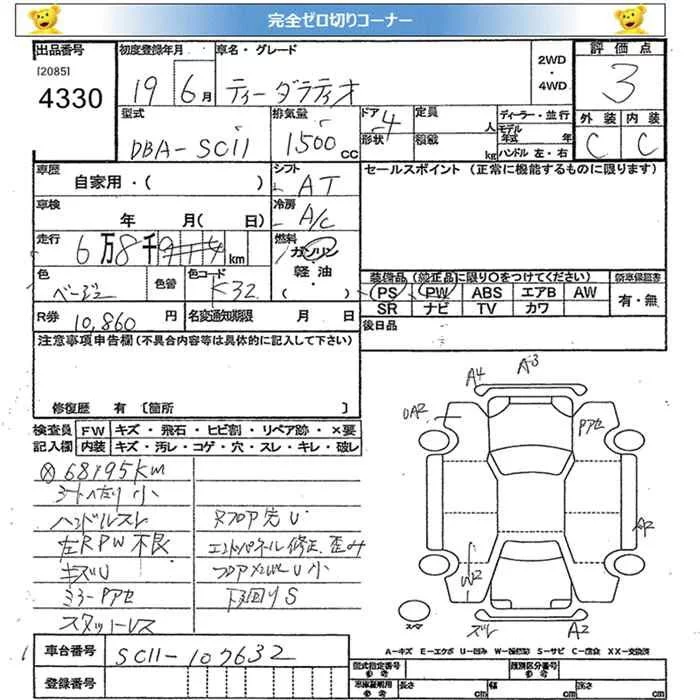 完全ゼロ切りコーナー
出品番号 初度登録年月 車名・グレード 2WD・4WD 評価点
[2085]
4330 19 6月 ティーダラティオ 3
型式 排気量 ドア形状 定員 ディーラー・並行 外装 内装
DBA-SC11 1500cc 4 人 積載 kg モデル年式 年 ハンドル 左・右 C C
車歴 シフト セールスポイント (正常に機能するものに限ります)
自家用・( ) AT
車検 年 月( 日) 冷房 A/C
走行 6万8千 km 燃料 ガソリン 軽油 ( )
色 ベージュ 色替 色コード K32
装備品 (純正品に限り〇をつけてください) 新車保証書
PS PW ABS エアB AW 有・無
SR ナビ TV カワ
R券 10,860円 名変通知期限 月 日 後日品
注意事項申告欄(不具合内容等は具体的に記入して下さい)
修復歴 有 [箇所 ]
検査員 FW キズ・飛石・ヒビ割・リペア跡・×要
記入欄 内装 キズ・汚レ・コゲ・穴・スレ・キレ・破レ
68195km
シートヘタリ 小
ハンドルスレ Rフロア先U
左RPW不良 エンドパネル修正、歪み
キズU U小
ミラーPアセ 下回りS
スタットレス
A4 A3
UA2 Pアセ
A2
W2
スマ ズレ A2
A-キズ E-エクボ U-凹み W-補修跡 S-サビ C-腐食 XX-交換済
車台番号 SC11-107632
登録番号
型式指定番号 参考 類別区分番号 参考
車庫証明用 参考 長さ cm 幅 cm 高さ cm